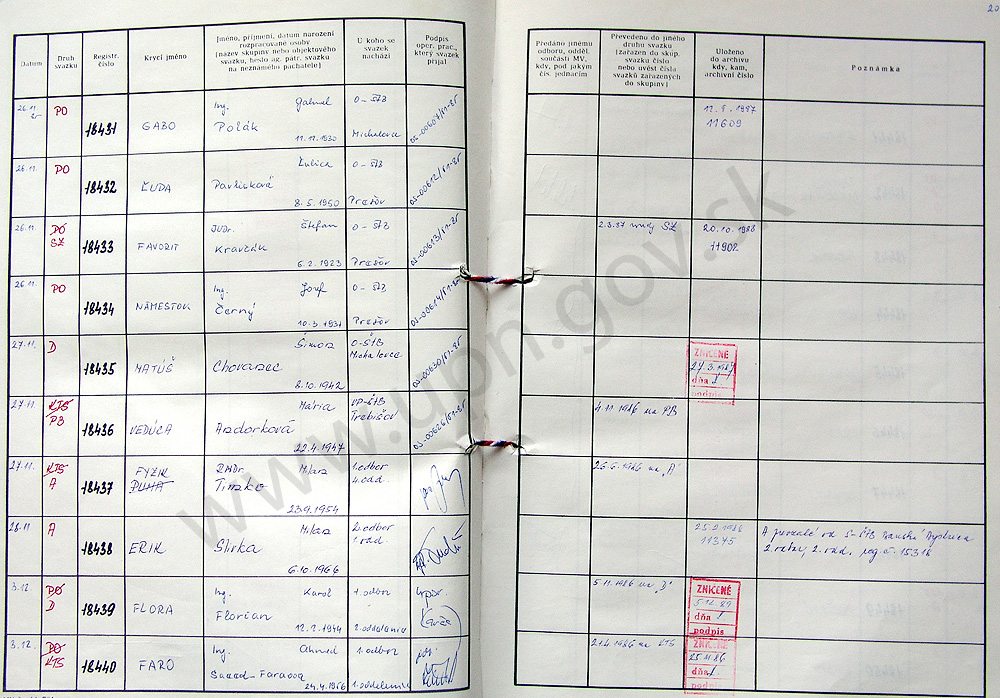 20
Datum
Druh svazku
Registr. číslo
Krycí jméno
Jméno, příjmení, datum narození
rozpracované osoby
(název skupiny nebo objektového
svazku, heslo ag. pátr. svazku
na neznámého pachatele)
U koho se
svazek
nachází
Podpis
oper. prac.,
který svazek
přijal
Předáno jinému
odboru, odděl.
součásti MV,
kdy, pod jakým
čís. jednacím
Převedeno do jiného
druhu svazku
(zařazen do skup.
svazku číslo
nebo uvést čísla
svazků zařazených
do skupiny)
Uloženo
do archivu
kdy, kam,
archivní číslo
Poznámka
26.11. 85 PO 18431 GABO Ing. Gabriel Polák 11.11.1930 O-ŠtB Michalovce OS-00607/51-85
11.9.1987
11609
26.11. PO 18432 ĽUDA Ľubica Pavlisková 8.5.1950 O-ŠtB Prešov OS-00612/51-85
26.11. PO SZ 18433 FAVORIT JUDr. Štefan 6.2.1923 O-ŠtB Prešov OS-00613/51-85
2.3.87 SZ
20.10.1988
11902
26.11. PO 18434 NÁMESTOK Ing. Jozef Černý 10.3.1931 O-ŠtB Prešov OS-00614/51-85
27.11. D 18435 MATÚŠ Šimon Chovanec 8.10.1942 O-ŠtB Michalovce OS-00630/51-85
ZNIČENÉ
dňa
podpis
27.11 KTS PB 18436 VEDÚCA Mária Andorková 22.4.1947 VP-ŠtB Trebišov OS-00626/51-85
4.11.1986 na PB
27.11. KTS A 18437 FYZIK PUMA RNDr. Milan Timko 23.9.1954 1.odbor 4.odd.
26.6.1986 na "A"
28.11 A 18438 ERIK Milan Slivka 6.10.1966 2.odbor 1.odd.
25.2.1986
11345
A prevzalé od S-ŠtB Banská Bystrica
2.odbor, 2.odd. reg.č. 15318
3.12. PO D 18439 FLORA Ing. Karol Florian 12.1.1944 1.odbor 2.oddelenie
5.11.1986 na "D"
ZNIČENÉ
5.12.89
dňa
podpis
3.12. PO KTS 18440 FARO Ing. Ahmed Saeed-Farooq 24.4.1956 1.odbor 1.oddelenie
21.4.1986 na KTS
ZNIČENÉ
25.11.86
dňa
podpis
www.upn.gov.sk